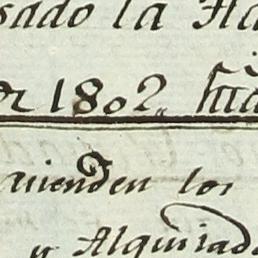 sado la Ha
de 1802, hta
auienden los
y Alquilad